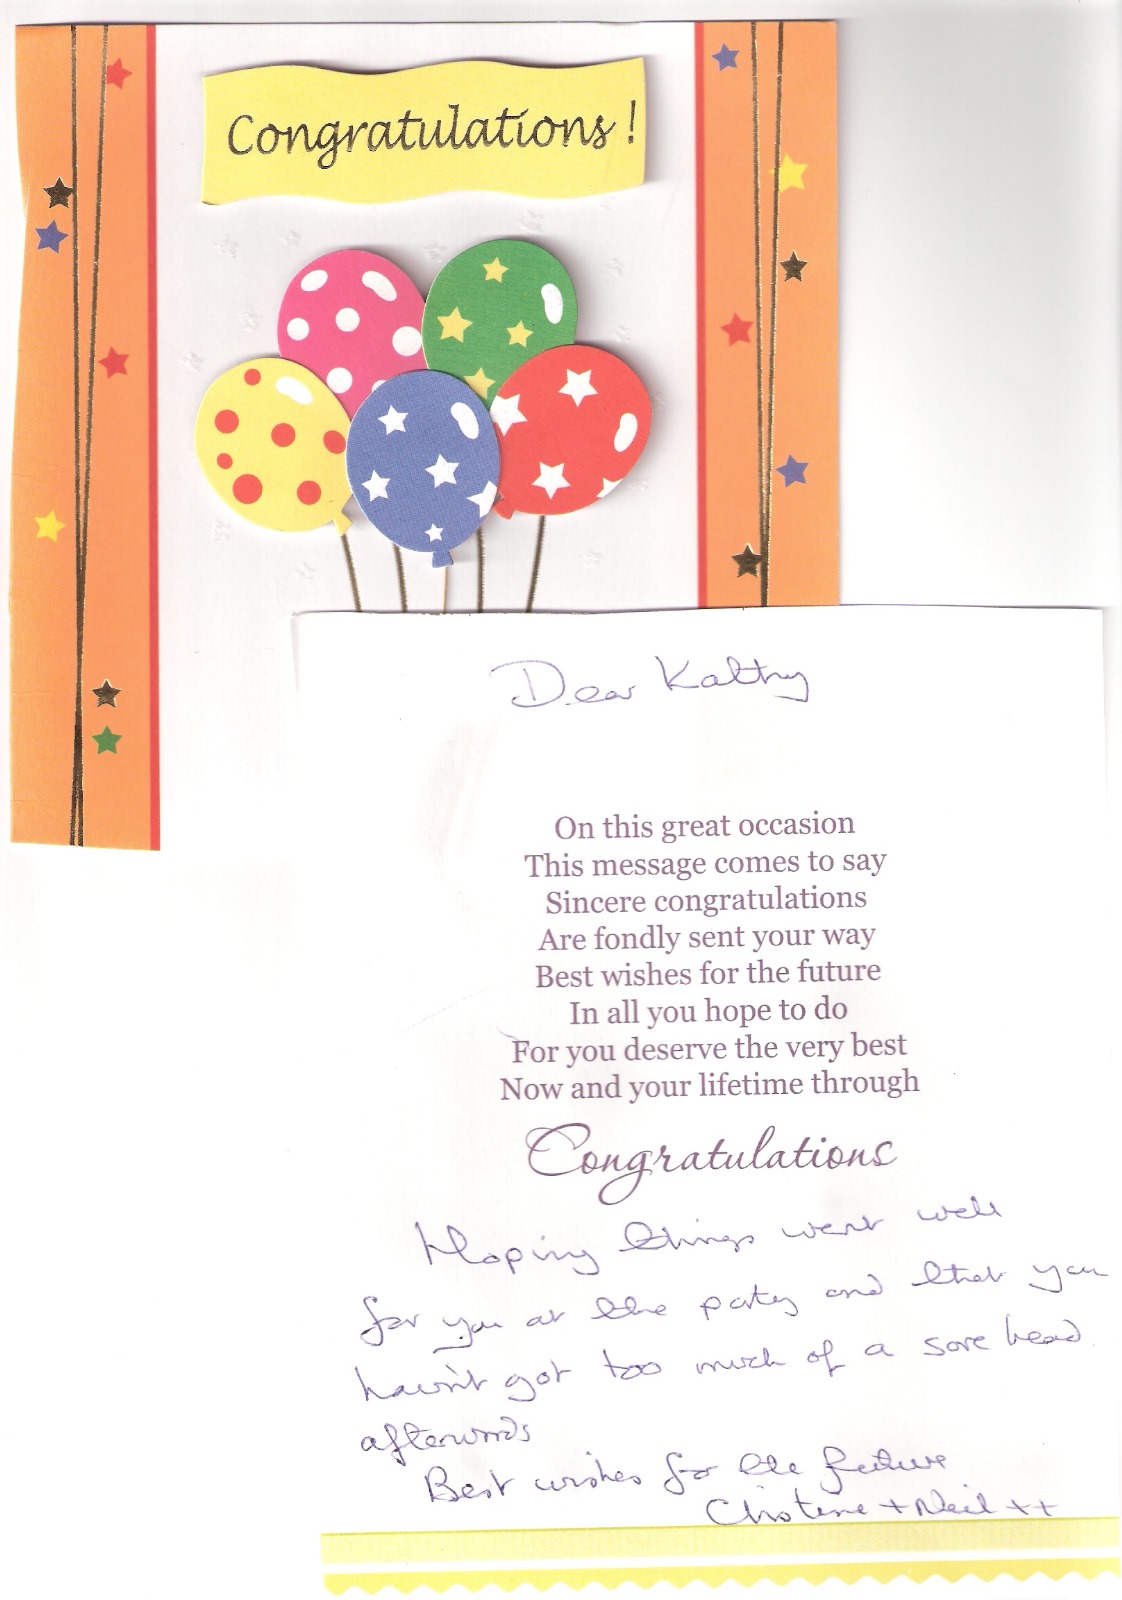 Congratulations!
Dear Kathy
On this great occasion
This message comes to say
Sincere congratulations
Are fondly sent your way
Best wishes for the future
In all you hope to do
For you deserve the very best
Now and your lifetime through
Congratulations
Hoping things went well
for you at the party and that you
havn't got too much of a sore head
afterwards
Best wishes for the future
Christene + Neil ++